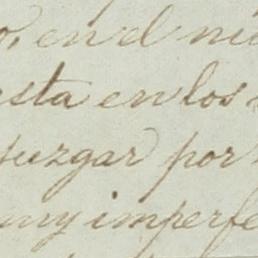 o, en el mi
esta en los
juzgar por
muy imperfe